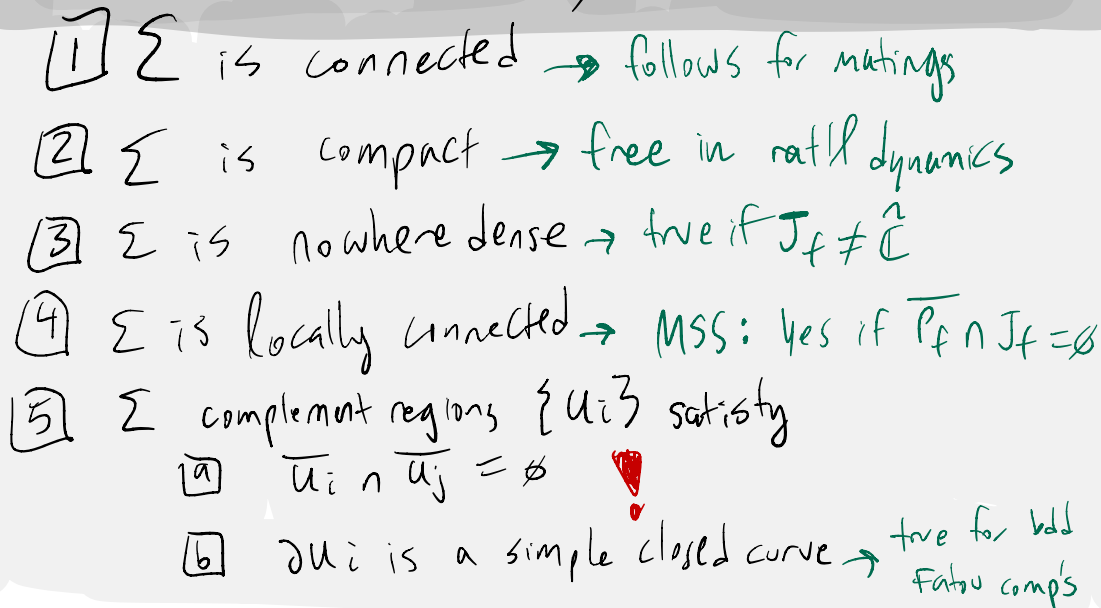 1 Σ is connected → follows for matings
2 Σ is compact → free in rat'l dynamics
3 Σ is nowhere dense → true if J_f ≠ Ĉ
4 Σ is locally connected → MSS: Yes if P̅_f ∩ J_f = ∅
5 Σ complement regions {Ui} satisfy
a U̅i ∩ U̅j = ∅ !
b ∂Ui is a simple closed curve → true for bdd
Fatou comp's